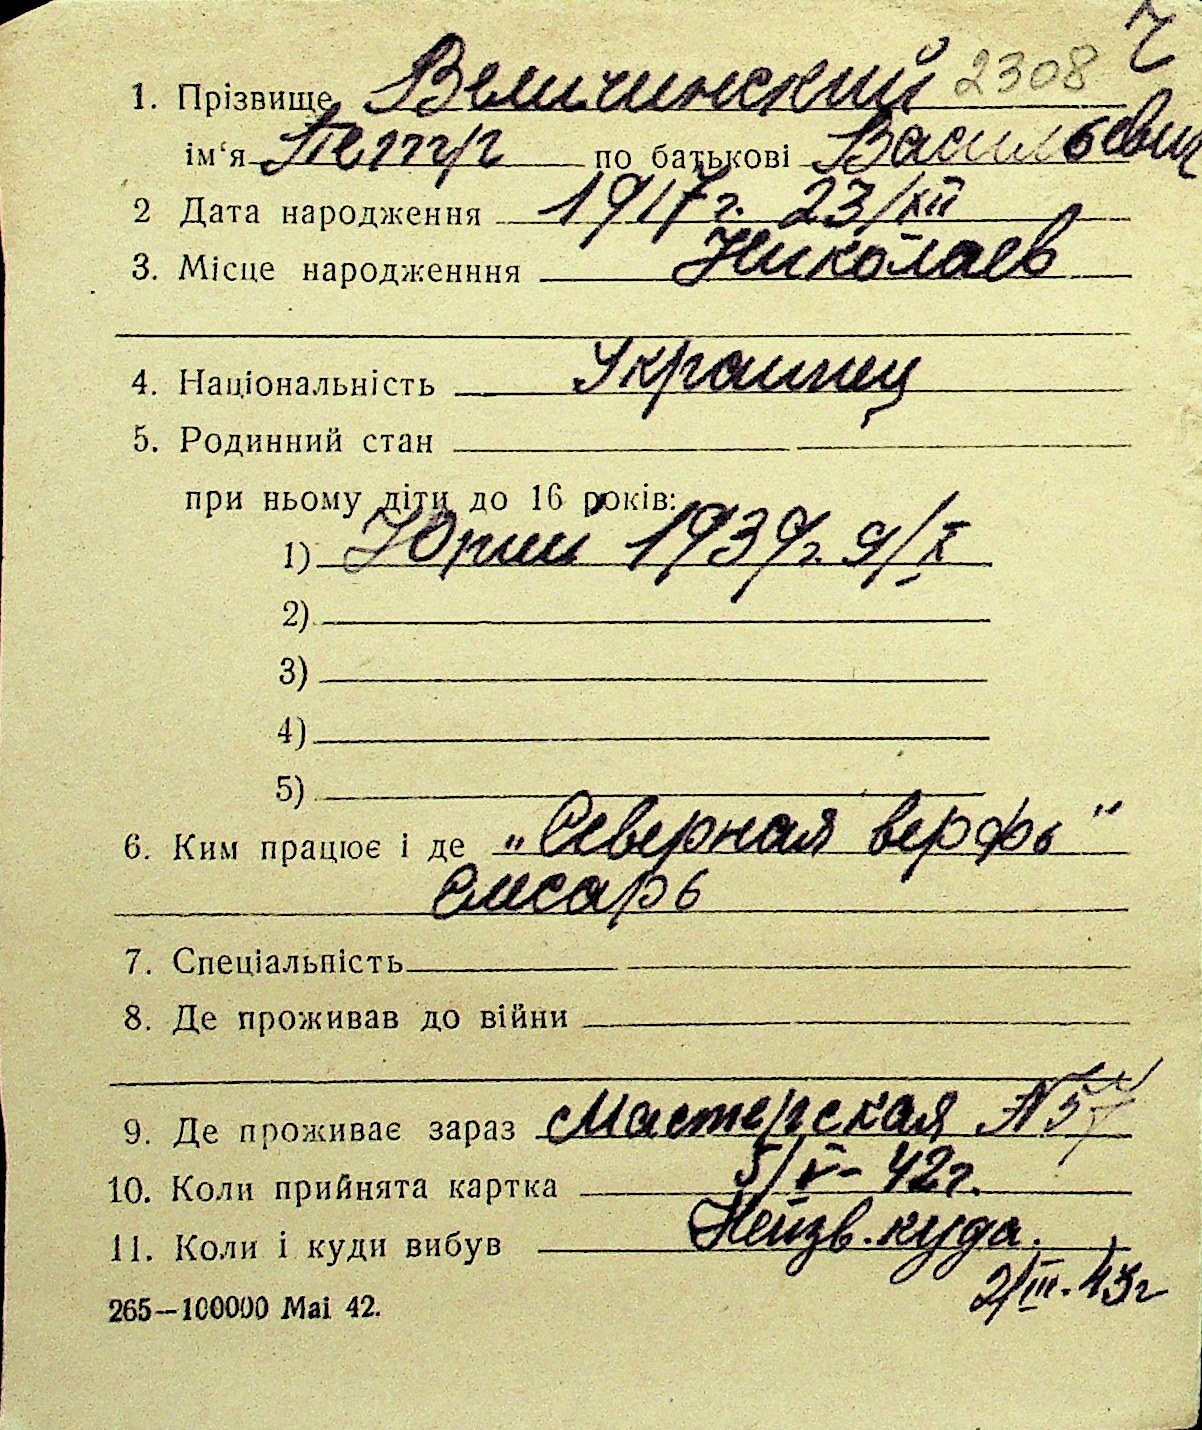 1. Прізвище Величинский 2308
ім‘я Петр по батькові Васильевич
2 Дата народження 1917г. 23/XII
3. Місце народженння Николаев
4. Національність Украинец
5. Родинний стан
при ньому діти до 16 років:
1) Юрий 1939г. 9/X
2)
3)
4)
5)
6. Ким працює і де „Северная верфь"
Слесарь
7. Спеціальність
8. Де проживав до війни
9. Де проживає зараз Мастерская N 57
10. Коли прийнята картка 5/V- 42г.
11. Коли і куди вибув Неизв. куда.
2/III. 43г
265—100000 Mai 42.